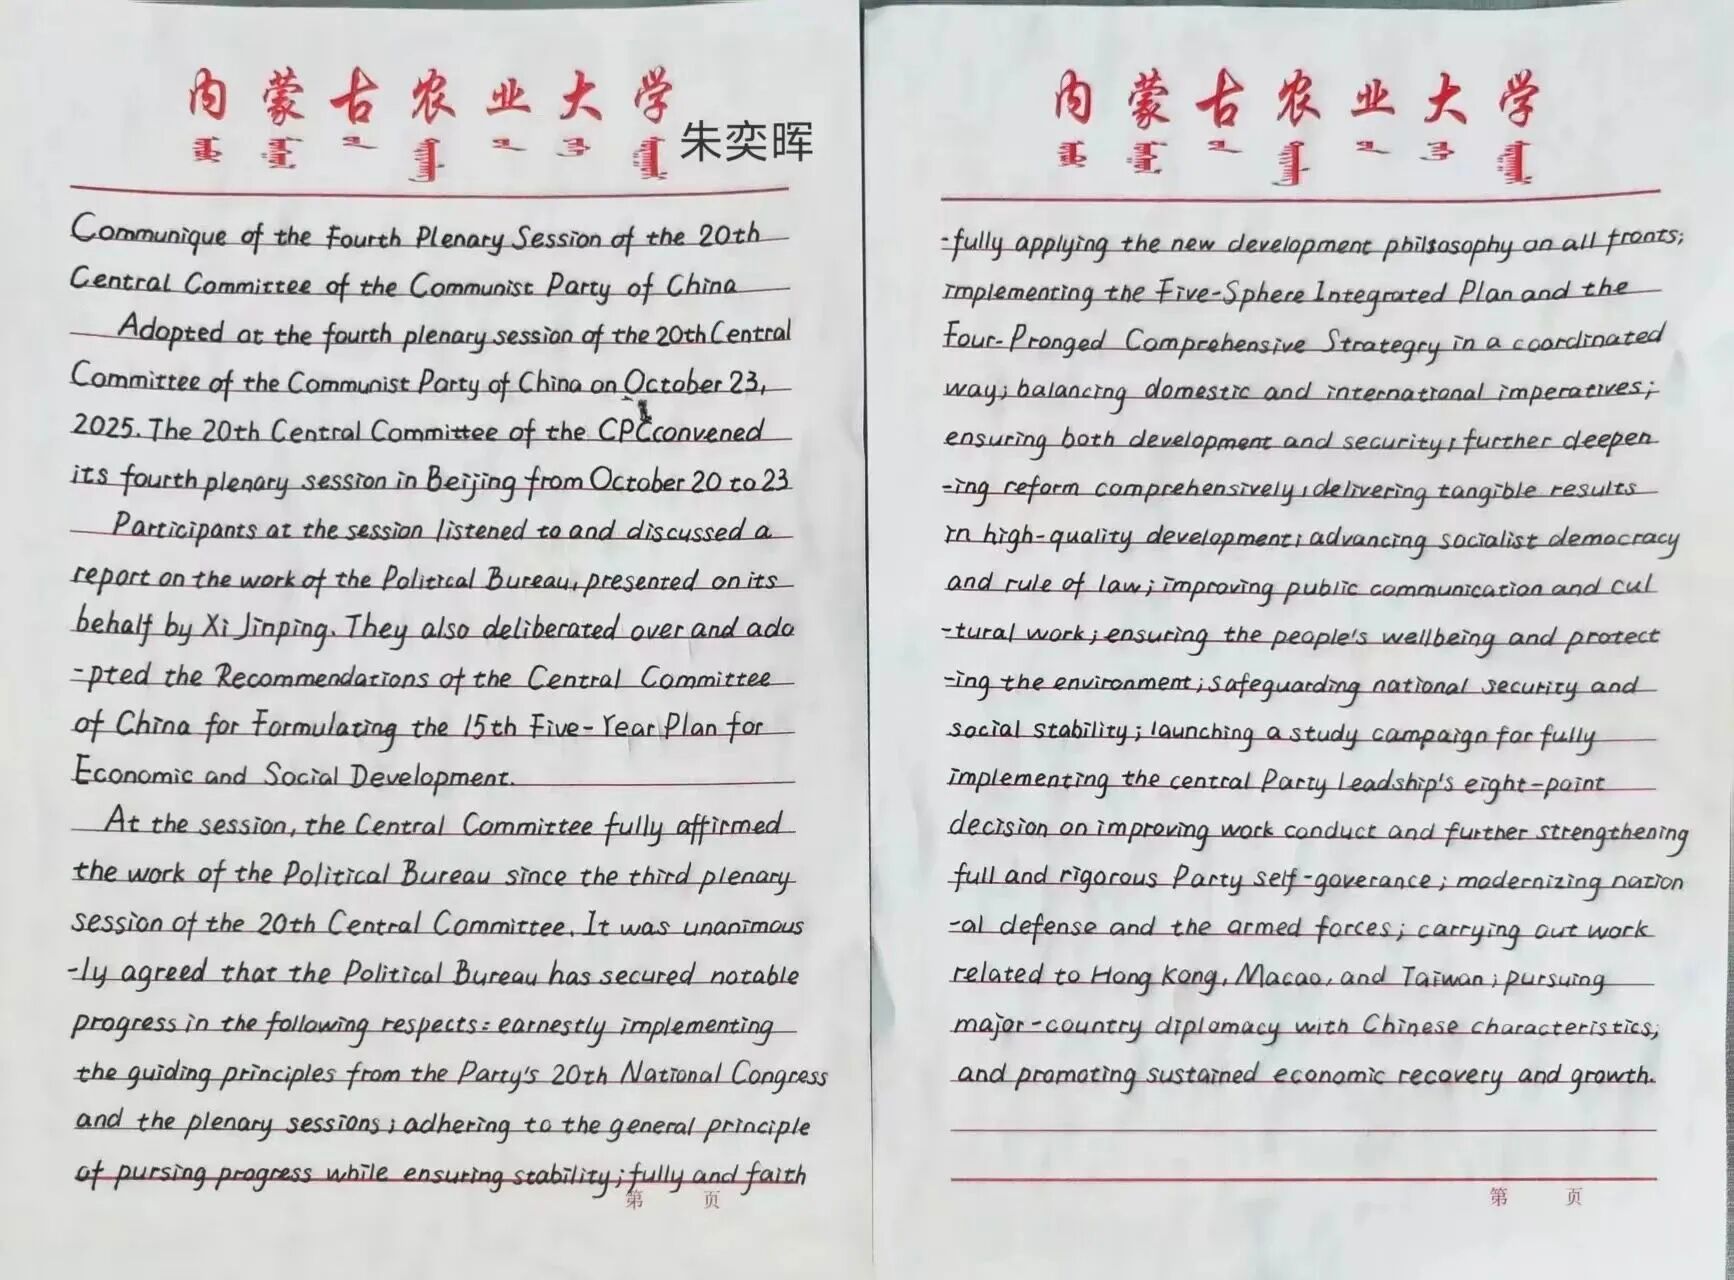 内蒙古农业大学
朱奕晖
Communique of the Fourth Plenary Session of the 20th
Central Committee of the Communist Party of China
Adopted at the fourth plenary session of the 20th Central
Committee of the Communist Party of China on October 23,
2025. The 20th Central Committee of the CPC convened
its fourth plenary session in Beijing from October 20 to 23
Participants at the session listened to and discussed a
report on the work of the Political Bureau, presented on its
behalf by Xi Jinping. They also deliberated over and ado
-pted the Recommendations of the Central Committee
of China for Formulating the 15th Five-Year Plan for
Economic and Social Development.
At the session, the Central Committee fully affirmed
the work of the Political Bureau since the third plenary
session of the 20th Central Committee. It was unanimous
-ly agreed that the Political Bureau has secured notable
progress in the following respects: earnestly implementing
the guiding principles from the Party's 20th National Congress
and the plenary sessions; adhering to the general principle
of pursing progress while ensuring stability; fully and faith
第 页
内蒙古农业大学
-fully applying the new development philsosophy on all fronts;
implementing the Five-Sphere Integrated Plan and the
Four-Pronged Comprehensive Strategry in a coordinated
way; balancing domestic and international imperatives;
ensuring both development and security; further deepen
-ing reform comprehensively; delivering tangible results
in high-quality development; advancing socialist democracy
and rule of law; improving public communication and cul
-tural work; ensuring the people's wellbeing and protect
-ing the environment; safeguarding national security and
social stability; launching a study campaign for fully
implementing the central Party leadship's eight-point
decision on improving work conduct and further strengthening
full and rigorous Party self-goverance; modernizing nation
-al defense and the armed forces; carrying out work
related to Hong Kong, Macao, and Taiwan; pursuing
major-country diplomacy with Chinese characteristics;
and promoting sustained economic recovery and growth.
第 页